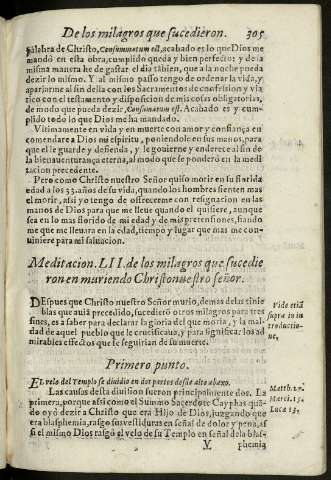 De los milagros que sucedieron. 305
palabra de Christo, Consummatum est, acabado es lo que Dios me
mandó en esta obra, cumplido queda y bien perfecto: y de la
misma manera he de gastar el dia tābien, que a la noche pueda
dezir lo mismo. Y al mismo passo tengo de ordenar la vida, y
aparejarme al fin della con los Sacramentos de confession y via
tico con el testamento y disposicion de mis cosas obligatorias,
de modo que pueda dezir, Consumatum est. Acabado es y cum
plido todo lo que Dios me ha mandado.
Vltimamente en vida y en muerte con amor y confiança en
comendare a Dios mi espiritu, poniendole en sus manos, para
que el le guarde y defienda, y le gouierne y enderece al fin de
la bienauenturança eterna, al modo que se ponderó en la medi
tacion precedente.
Pero como Christo nuestro Señor quiso morir en su florida
edad a los 33. años de su vida, quando los hombres sienten mas
el morir, assi yo tengo de ofrecerme con resignacion en las
manos de Dios para que me lleue quando el quisiere, aunque
sea en lo mas florido de mi edad y de mis pretensiones, fiando
me que me lleuara en la edad, tiempo y lugar que mas me con-
uiniere para mi saluacion.
Meditacion. LII. de los milagros que sucedie
ron en muriendo Christo nuestro señor.
DEspues que Christo nuestro Señor murio, demas de las tinie
blas que auia precedido, sucedierō otros milagros para tres
fines, es a saber para declarar la gloria del que moria, y la mal
dad de aquel pueblo que le crucificaua, y para significar los ad
mirables efectos que se seguirian de su muerte.
Vide etiā
supra in in
troductio-
ne,
Primero punto.
EL velo del Templo se diuidio en dos partes desde alto abaxo.
Las causas desta diuision fueron principalmente dos. La
primera, porque assi como el Summo Sacerdote Cayphas quā-
do oyó dezir a Christo que era Hijo de Dios, juzgando que
era blasphemia, rasgo sus vestiduras en señal de dolor y pena, as
si el mismo Dios rasgó el velo de su Templo en señal de la blas-
Matth. 27.
Marci. 15.
Luca 23.
V phemia